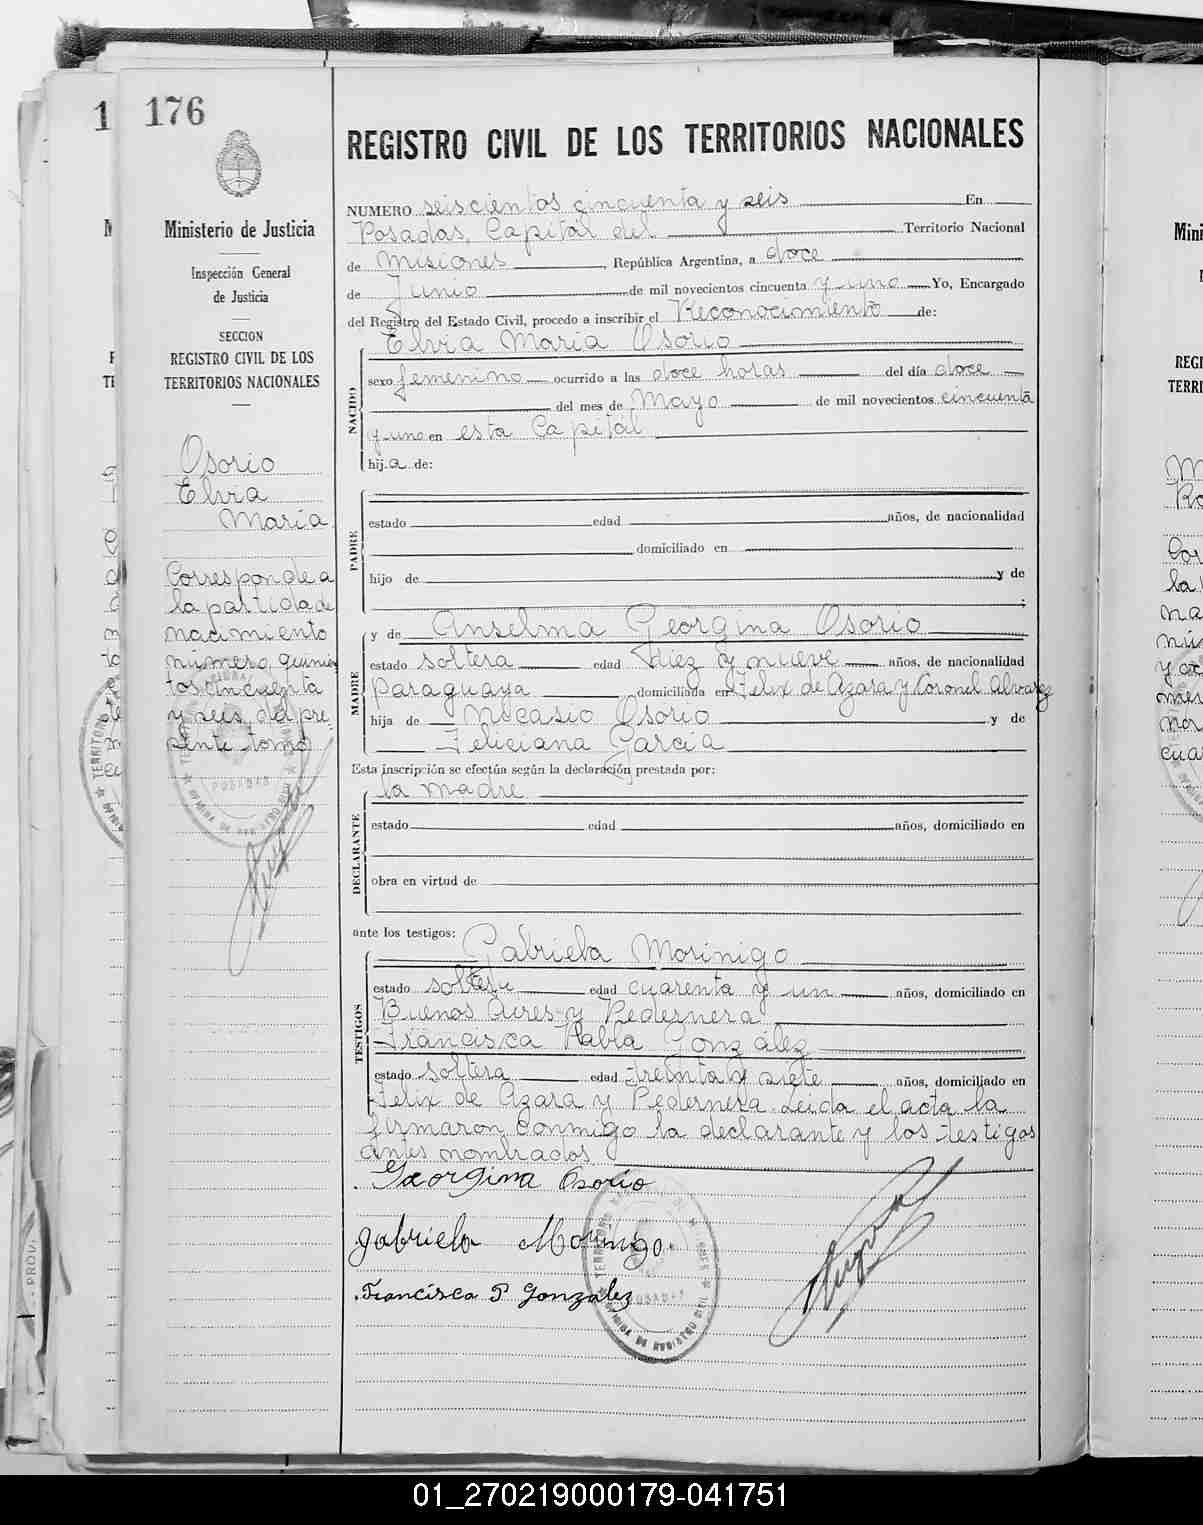 176
Ministerio de Justicia
Inspección General
de Justicia
SECCION
REGISTRO CIVIL DE LOS
TERRITORIOS NACIONALES
Osorio
Elvia
Maria
Corresponde a
la partida de
nacimiento
número, quinien
tos cincuenta
y seis del pre
sente tomo
REGISTRO CIVIL DE LOS TERRITORIOS NACIONALES
NUMERO seiscientos cincuenta y seis En
Posadas, Capital del Territorio Nacional
de Misiones, República Argentina, a doce
de Junio de mil novecientos cincuenta y uno Yo, Encargado
del Registro del Estado Civil, procedo a inscribir el Reconocimiento de:
Elvia Maria Osorio
NACIDO
sexo femenino ocurrido a las doce horas del día doce
del mes de Mayo de mil novecientos cincuenta
y uno en esta Capital
hij.a de:
PADRE
estado edad años, de nacionalidad
domiciliado en
hijo de y de
;
MADRE
y de Anselma Georgina Osorio
estado soltera edad diez y nueve años, de nacionalidad
paraguaya domiciliada en Felix de Azara y Coronel Alvarez
hija de Nicasio Osorio y de
Feliciana Garcia
Esta inscripción se efectúa según la declaración prestada por:
la madre
DECLARANTE
estado edad años, domiciliado en
obra en virtud de
ante los testigos:
TESTIGOS
Gabriela Morinigo
estado soltera edad cuarenta y un años, domiciliado en
Buenos Aires y Pedernera
Francisca Pabla Gonzalez
estado soltera edad treinta y siete años, domiciliado en
Felix de Azara y Pedernera. Leida el acta la
firmaron conmigo la declarante y los testigos
antes nombrados
Georgina Osorio
Gabriela Morinigo.
Francisca P Gonzalez
POSADAS
01_270219000179-041751